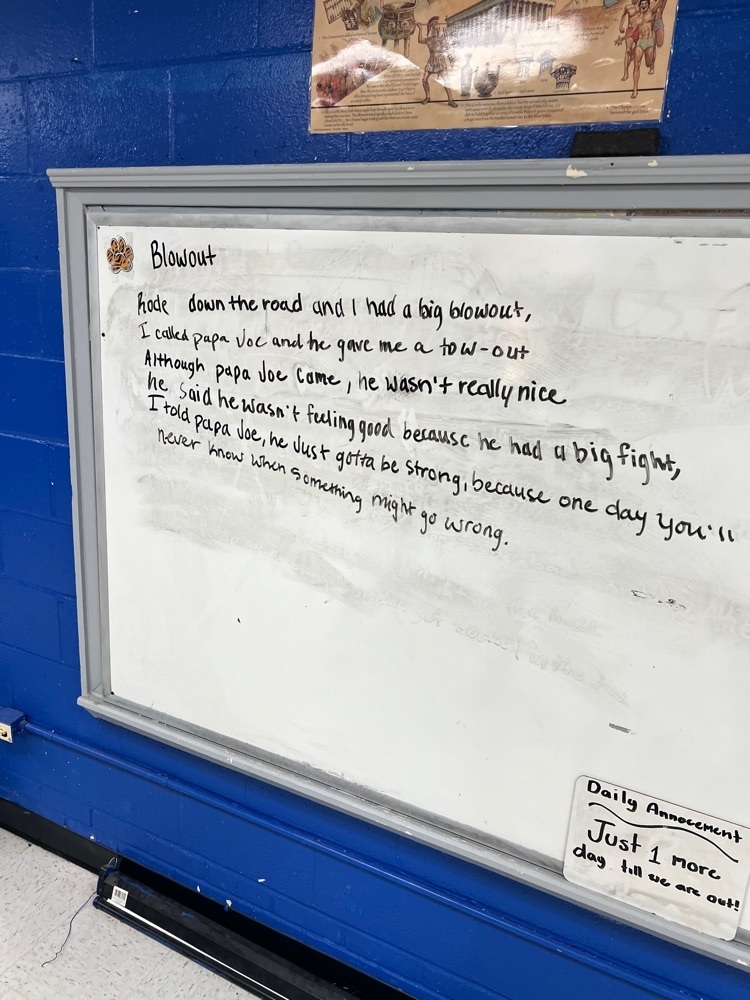 Blowout
Rode down the road and I had a big blowout,
I called papa Joe and he gave me a tow-out
Although papa Joe came, he wasn't really nice
he said he wasn't feeling good because he had a big fight,
I told papa Joe, he Just gotta be strong, because one day you'll
never know when something might go wrong.
Daily Annocement
Just 1 more
day till we are out!